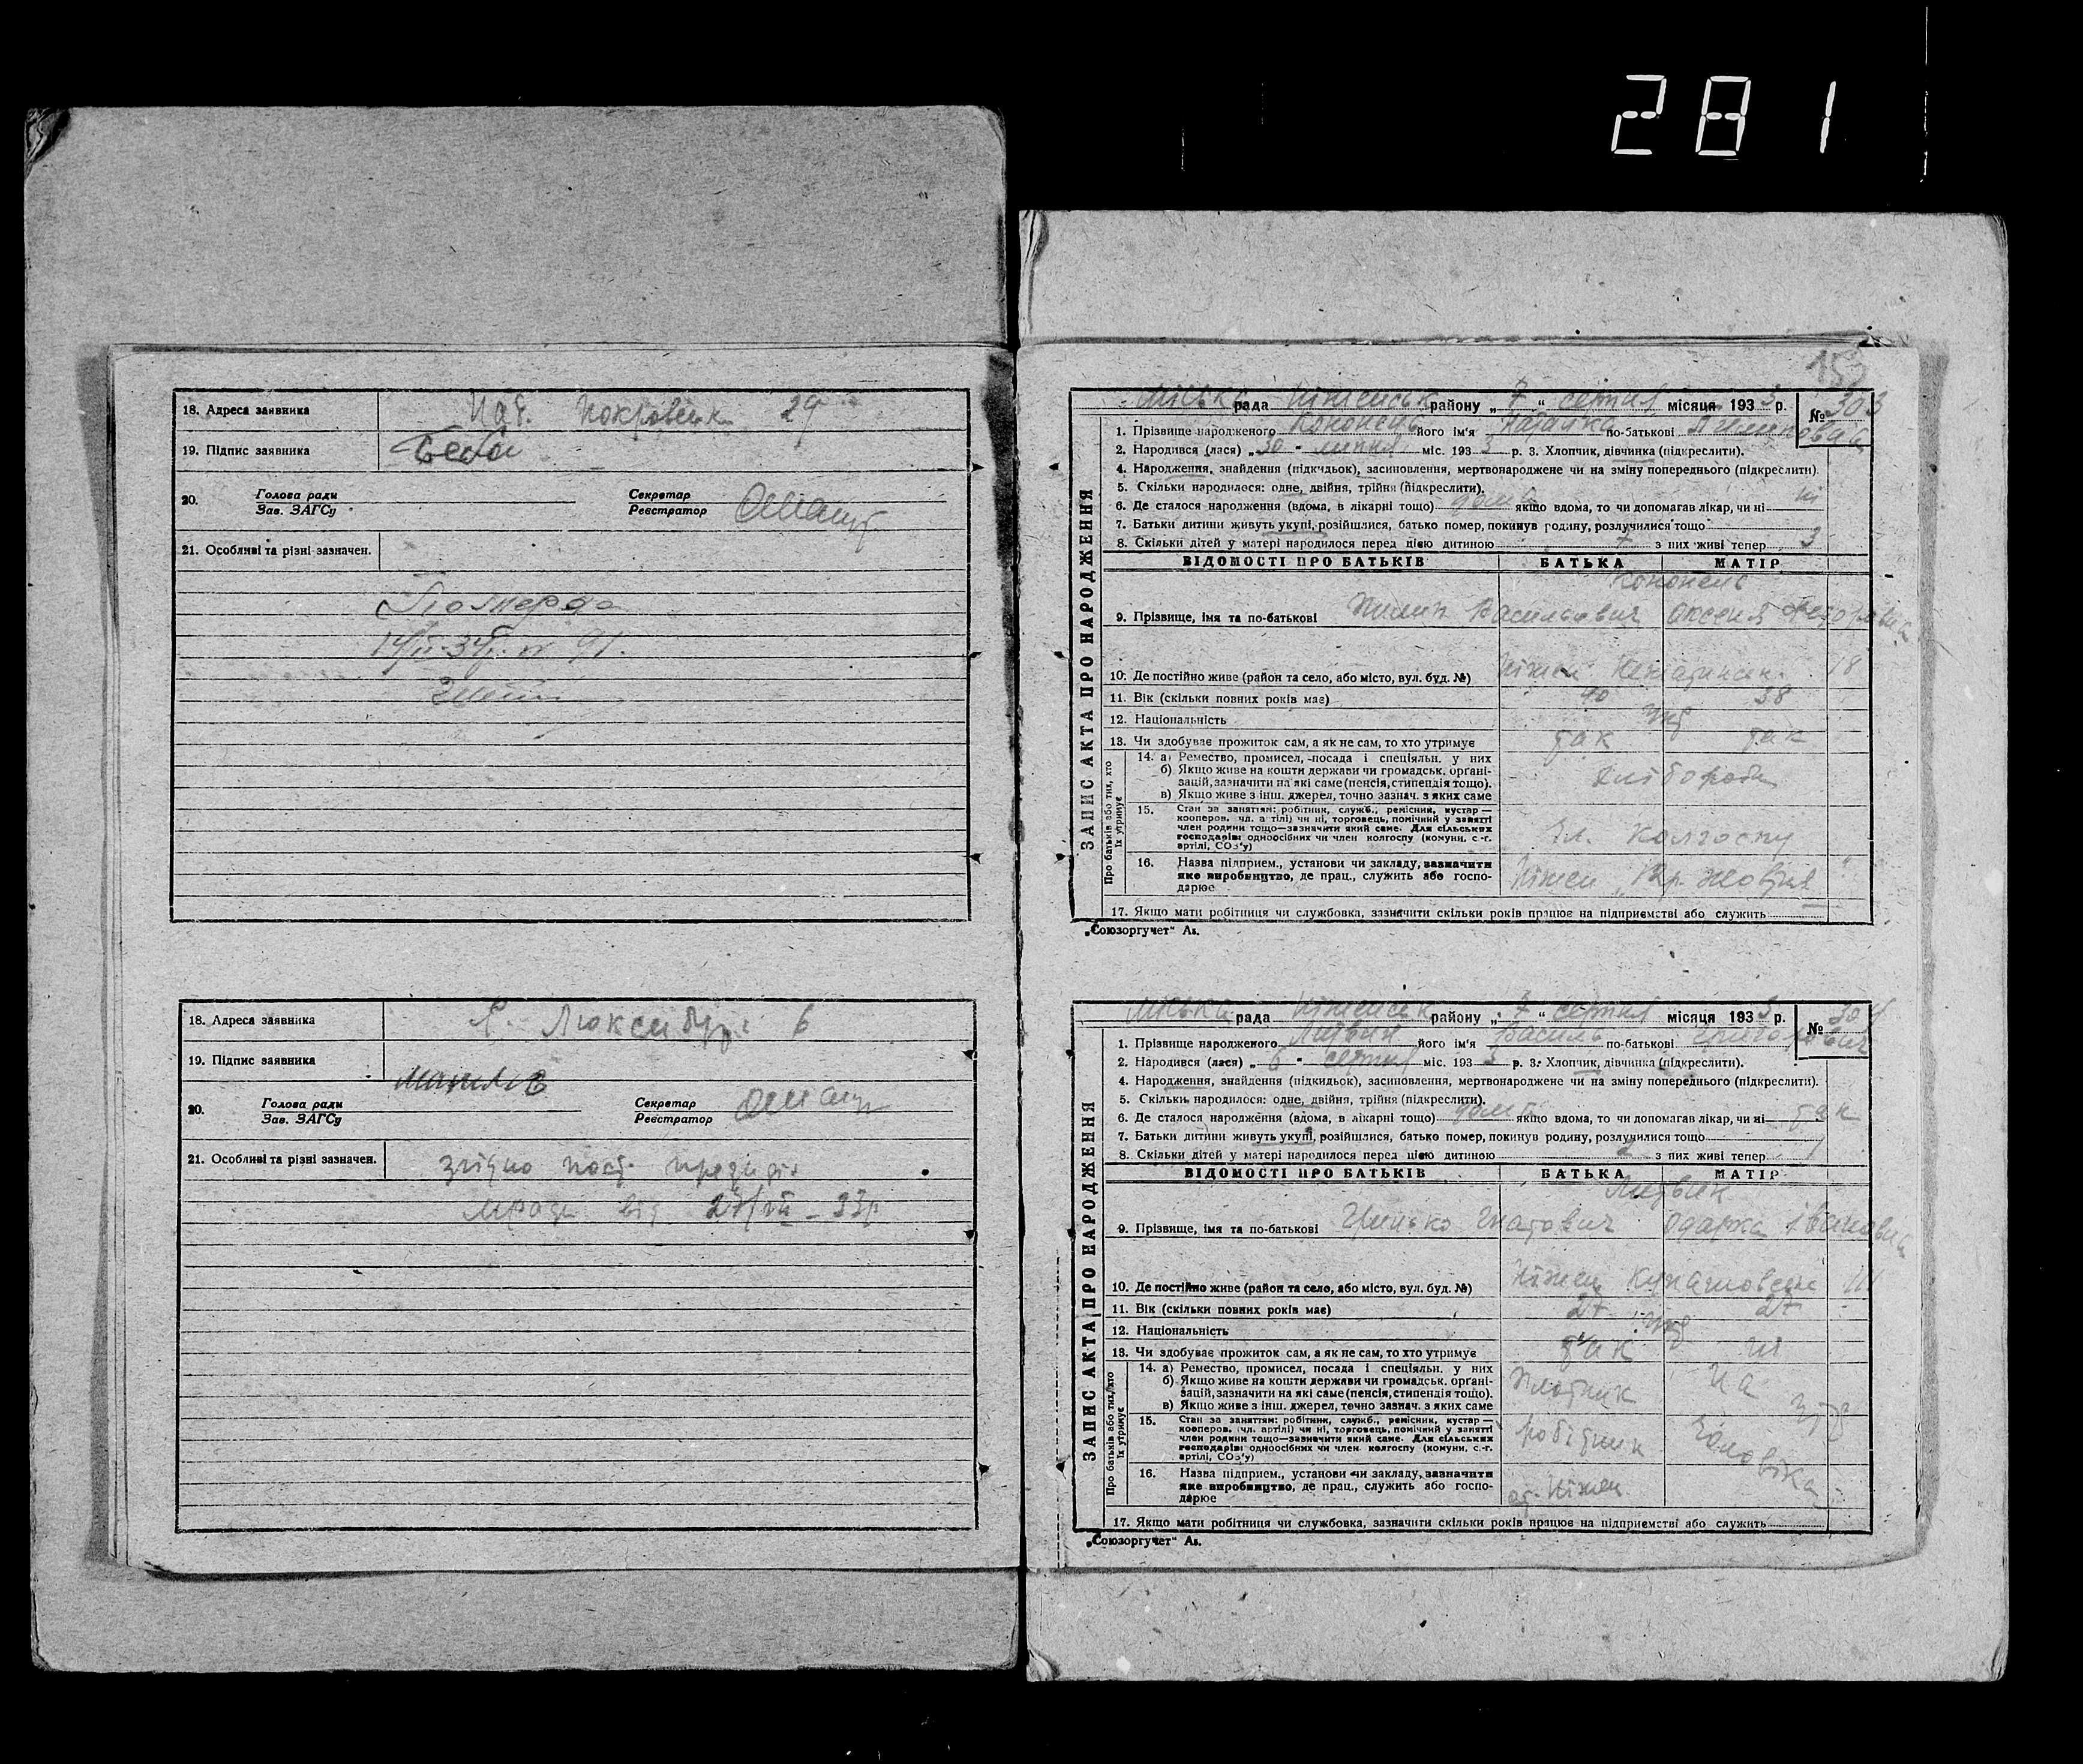 281
18. Адреса заявника Наб. Покровськ 29
19. Підпис заявника
20. Голова ради Секретар
Зав. ЗАГСу Реєстратор
21. Особливі та різні зазначен.
Померла
18. Адреса заявника Р. Люксембур. 6
19. Підпис заявника
20. Голова ради Секретар
Зав. ЗАГСу Реєстратор
21. Особливі та різні зазначен. згідно пост. президії
від 27/VII – 33р
152
ЗАПИС АКТА ПРО НАРОДЖЕННЯ
Міська рада Ніженськ району „ 7 “ серпня місяця 193 3 р. № 303
1. Прізвище народженого Кононець його ім'я Наталка по-батькові Пилиповна
2. Народився (лася) „ 30 “ липня міс. 193 3 р. 3. Хлопчик, дівчинка (підкреслити).
4. Народження, знайдення (підкидьок), засиновлення, мертвонароджене чи на зміну попереднього (підкреслити).
5. Скільки народилося: одне, двійня, трійня (підкреслити).
6. Де сталося народження (вдома, в лікарні тощо) дома якщо вдома, то чи допомагав лікар, чи ні ні
7. Батьки дитини живуть укупі, розійшлися, батько помер, покинув родину, розлучилися тощо
8. Скільки дітей у матері народилося перед цією дитиною 7 з них живі тепер 3
ВІДОМОСТІ ПРО БАТЬКІВ БАТЬКА МАТІР
Кононець
9. Прізвище, імя та по-батькові Пилип Васильович Оксеня Федоровна
10. Де постійно живе (район та село, або місто, вул. буд. №) Ніжен 18
11. Вік (скільки повних років має) 40 38
12. Національність Укр
13. Чи здобуває прожиток сам, а як не сам, то хто утримує так так
Про батьків або тих, хто їх утримує
14. а) Ремество, промисел, посада і спеціяльн. у них
б) Якщо живе на кошти держави чи громадськ. організацій, зазначити на які саме (пенсія, стипендія тощо).
в) Якщо живе з інш. джерел, точно зазнач. з яких саме
хлібороби
15. Стан за заняттям: робітник, служб., ремісник, кустар —
кооперов. чл. артілі) чи ні, торговець, помічний у занятті
член родини тощо—зазначити який саме. Для сільських
господарів: одноосібних чи член колгоспу (комуни, с.-г.
артілі, СОЗ'у)
Чл. колгоспу
16. Назва підприєм., установи чи закладу, зазначити
яке виробництво, де прац., служить або госпо-
дарює
Ніжен „12 р. Жовтня“
17. Якщо мати робітниця чи службовка, зазначити скільки років працює на підприємстві або служить
„Союзоргучет“ Ав.
ЗАПИС АКТА ПРО НАРОДЖЕННЯ
Міська рада Ніженськ району „ 7 “ серпня місяця 193 3 р. № 304
1. Прізвище народженого Литвин його ім'я Василь по-батькові Григорович
2. Народився (лася) „ 6 “ серпня міс. 193 3 р. 3. Хлопчик, дівчинка (підкреслити).
4. Народження, знайдення (підкидьок), засиновлення, мертвонароджене чи на зміну попереднього (підкреслити).
5. Скільки народилося: одне, двійня, трійня (підкреслити).
6. Де сталося народження (вдома, в лікарні тощо) дома якщо вдома, то чи допомагав лікар, чи ні так
7. Батьки дитини живуть укупі, розійшлися, батько помер, покинув родину, розлучилися тощо
8. Скільки дітей у матері народилося перед цією дитиною 2 з них живі тепер 1
ВІДОМОСТІ ПРО БАТЬКІВ БАТЬКА МАТІР
Литвин
9. Прізвище, імя та по-батькові Грицько Гнатович Одарка Івановна
10. Де постійно живе (район та село, або місто, вул. буд. №) Ніжен
11. Вік (скільки повних років має) 27 27
12. Національність Укр
13. Чи здобуває прожиток сам, а як не сам, то хто утримує так ні
Про батьків або тих, хто їх утримує
14. а) Ремество, промисел, посада і спеціяльн. у них
б) Якщо живе на кошти держави чи громадськ. організацій, зазначити на які саме (пенсія, стипендія тощо).
в) Якщо живе з інш. джерел, точно зазнач. з яких саме
Плотник На
15. Стан за заняттям: робітник, служб., ремісник, кустар —
кооперов. чл. артілі) чи ні, торговець, помічний у занятті
член родини тощо—зазначити який саме. Для сільських
господарів: одноосібних чи член колгоспу (комуни, с.-г.
артілі, СОЗ'у)
робітник чоловіка
16. Назва підприєм., установи чи закладу, зазначити
яке виробництво, де прац., служить або госпо-
дарює
ст. Ніжен
17. Якщо мати робітниця чи службовка, зазначити скільки років працює на підприємстві або служить
„Союзоргучет“ Ав.